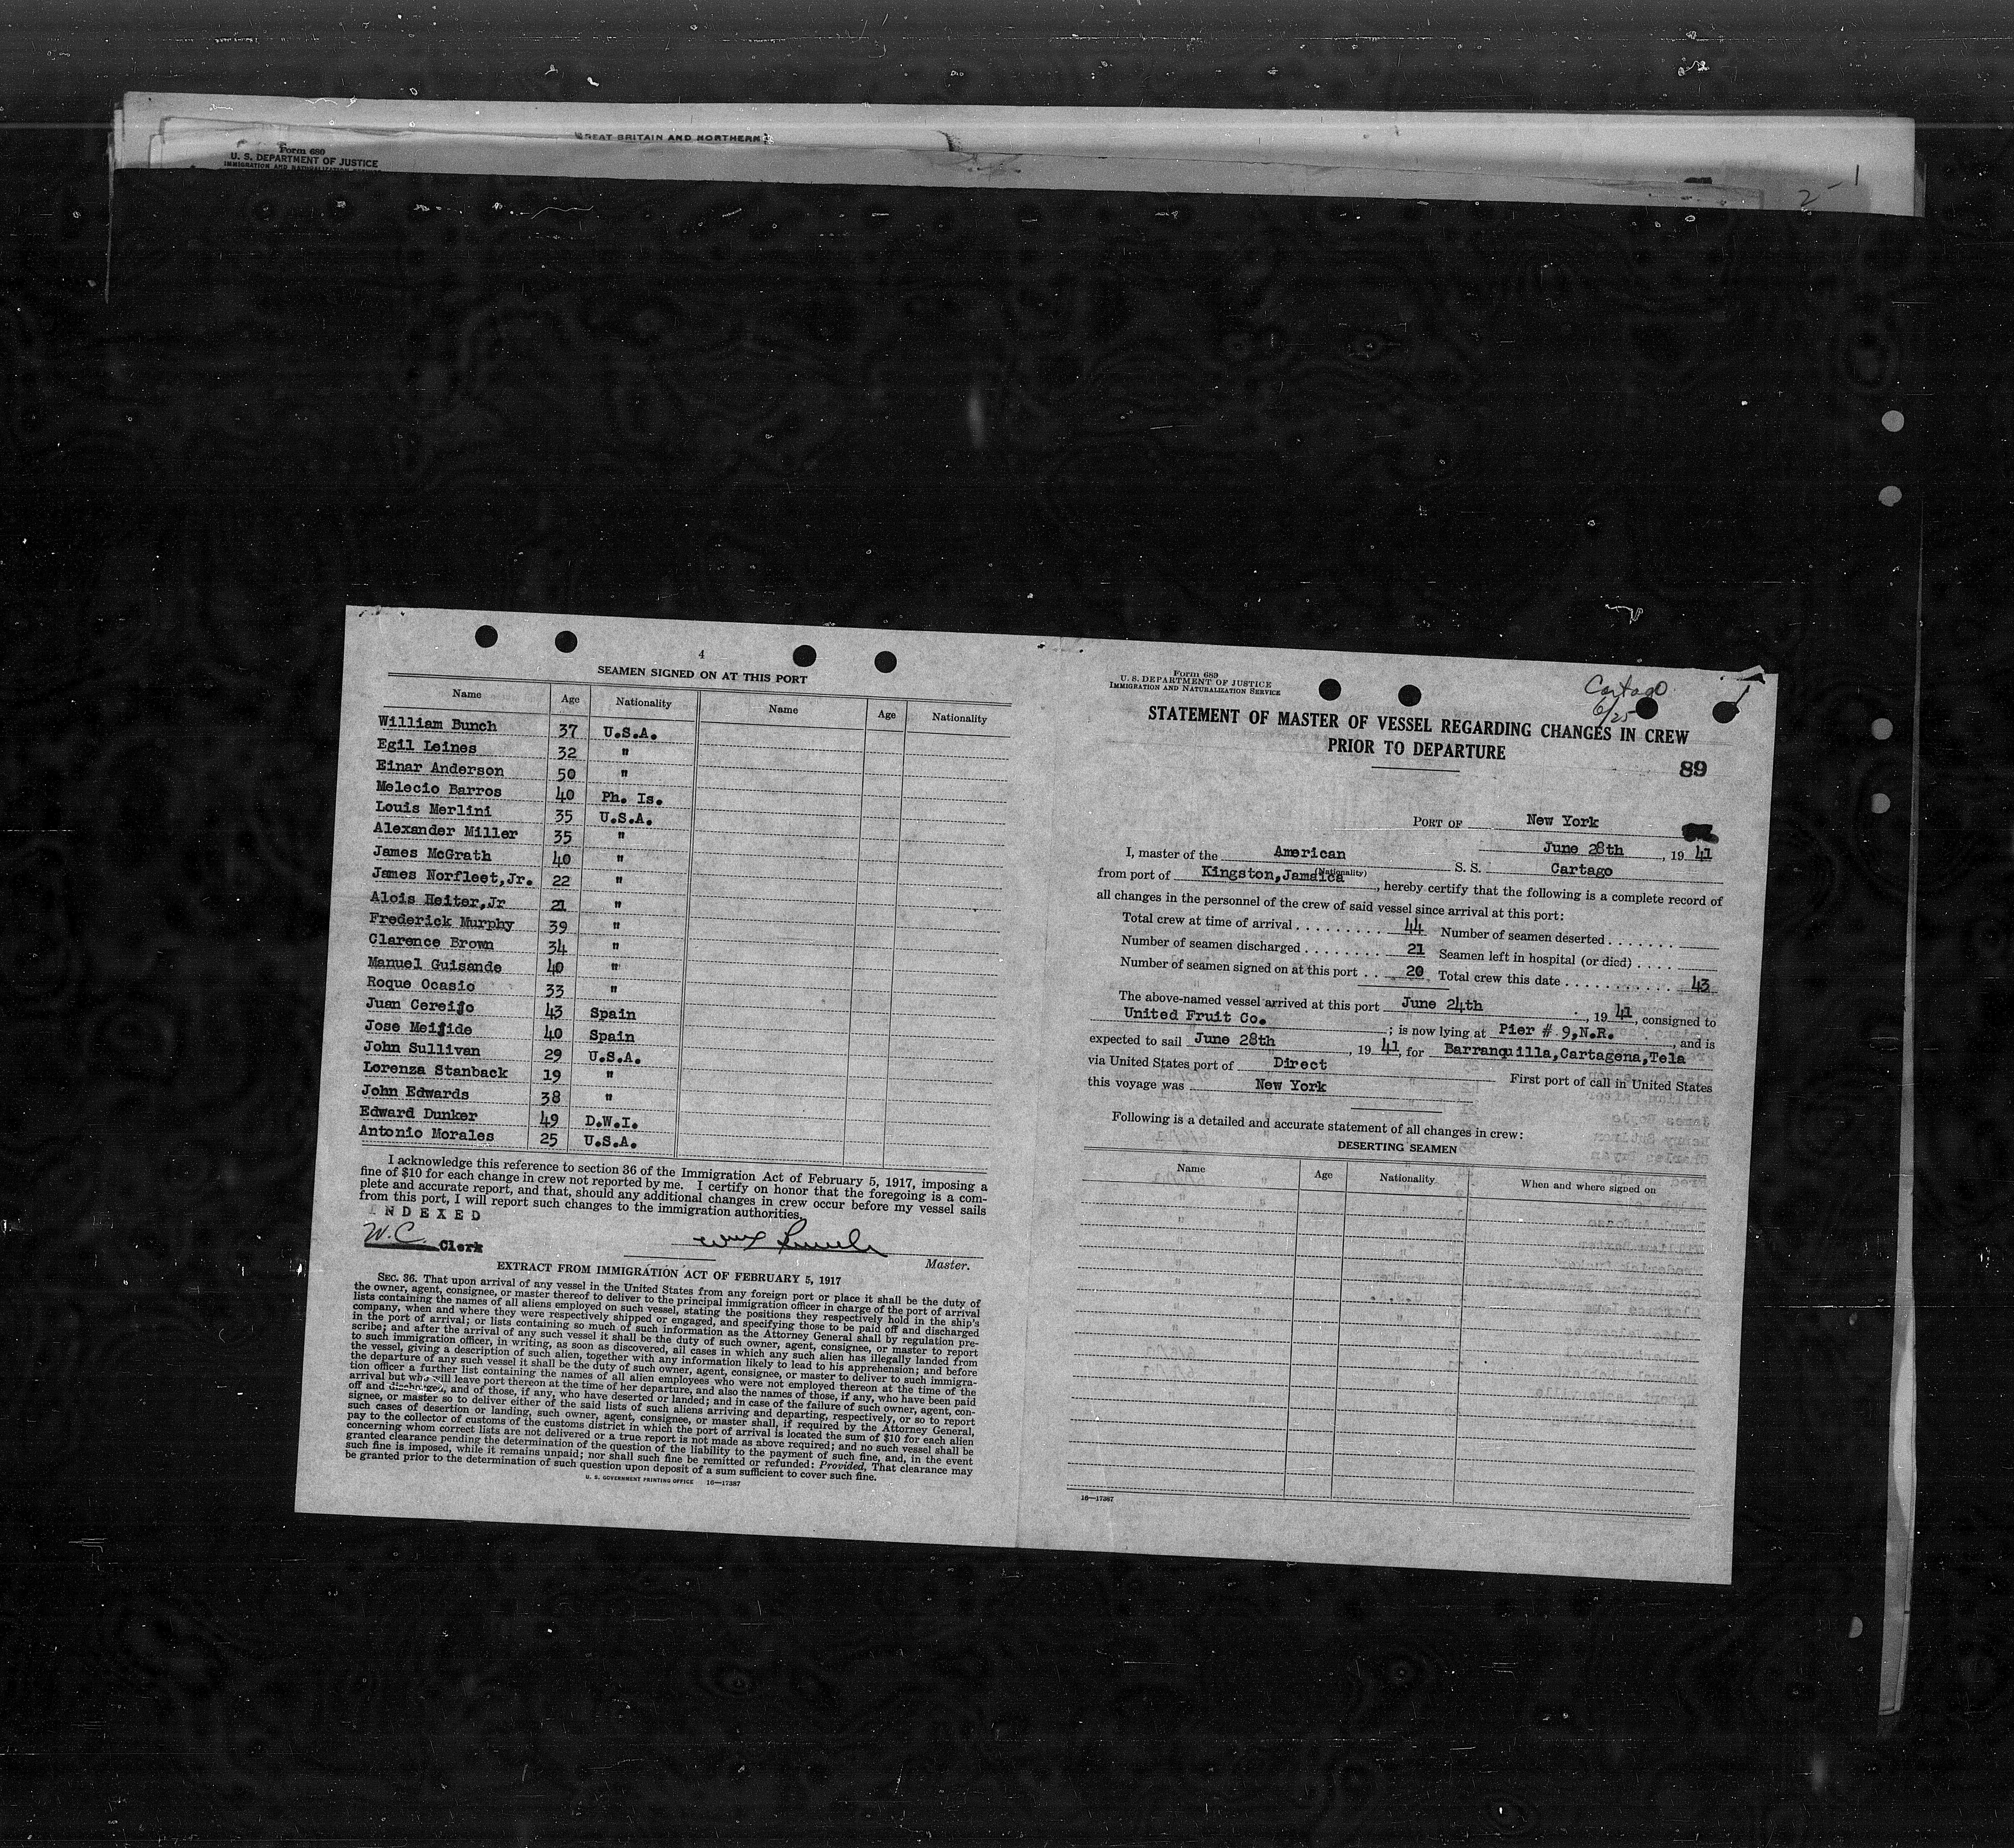 GREAT BRITAIN AND NORTHERN
Form 680
U. S. DEPARTMENT OF JUSTICE
IMMIGRATION AND NATURALIZATION
2-1
4
SEAMEN SIGNED ON AT THIS PORT
Name Age Nationality Name Age Nationality
William Bunch 37 U.S.A.
Egil Leines 32 "
Einar Anderson 50 "
Melecio Barros 40 Ph. Is.
Louis Merlini 35 U.S.A.
Alexander Miller 35 "
James McGrath 40 "
James Norfleet,Jr. 22 "
Alois Heiter,Jr 21 "
Frederick Murphy 39 "
Clarence Brown 34 "
Manuel Guisande 40 "
Roque Ocasio 33 "
Juan Cereijo 43 Spain
Jose Meijide 40 Spain
John Sullivan 29 U.S.A.
Lorenza Stanback 19 "
John Edwards 38 "
Edward Dunker 49 D.W.I.
Antonio Morales 25 U.S.A.
I acknowledge this reference to section 36 of the Immigration Act of February 5, 1917, imposing a
fine of $10 for each change in crew not reported by me. I certify on honor that the foregoing is a com-
plete and accurate report, and that, should any additional changes in crew occur before my vessel sails
from this port, I will report such changes to the immigration authorities.
INDEXED
W.C. Clerk
Master.
EXTRACT FROM IMMIGRATION ACT OF FEBRUARY 5, 1917
SEC. 36. That upon arrival of any vessel in the United States from any foreign port or place it shall be the duty of
the owner, agent, consignee, or master thereof to deliver to the principal immigration officer in charge of the port of arrival
lists containing the names of all aliens employed on such vessel, stating the positions they respectively hold in the ship's
company, when and where they were respectively shipped or engaged, and specifying those to be paid off and discharged
in the port of arrival; or lists containing so much of such information as the Attorney General shall by regulation pre-
scribe; and after the arrival of any such vessel it shall be the duty of such owner, agent, consignee, or master to report
to such immigration officer, in writing, as soon as discovered, all cases in which any such alien has illegally landed from
the vessel, giving a description of such alien, together with any information likely to lead to his apprehension; and before
the departure of any such vessel it shall be the duty of such owner, agent, consignee, or master to deliver to such immigra-
tion officer a further list containing the names of all alien employees who were not employed thereon at the time of the
arrival but who will leave port thereon at the time of her departure, and also the names of those, if any, who have been paid
off and discharged, and of those, if any, who have deserted or landed; and in case of the failure of such owner, agent, con-
signee, or master so to deliver either of the said lists of such aliens arriving and departing, respectively, or so to report
such cases of desertion or landing, such owner, agent, consignee, or master shall, if required by the Attorney General,
pay to the collector of customs of the customs district in which the port of arrival is located the sum of $10 for each alien
concerning whom correct lists are not delivered or a true report is not made as above required; and no such vessel shall be
granted clearance pending the determination of the question of the liability to the payment of such fine, and, in the event
such fine is imposed, while it remains unpaid; nor shall such fine be remitted or refunded: Provided, That clearance may
be granted prior to the determination of such question upon deposit of a sum sufficient to cover such fine.
U. S. GOVERNMENT PRINTING OFFICE 16—17387
Form 689
U. S. DEPARTMENT OF JUSTICE
IMMIGRATION AND NATURALIZATION SERVICE
Cartago
6/25
STATEMENT OF MASTER OF VESSEL REGARDING CHANGES IN CREW
PRIOR TO DEPARTURE
89
PORT OF New York
June 28th, 19 41
I, master of the American S. S. Cartago
(Nationality)
from port of Kingston,Jamaica, hereby certify that the following is a complete record of
all changes in the personnel of the crew of said vessel since arrival at this port:
Total crew at time of arrival 44 Number of seamen deserted
Number of seamen discharged 21 Seamen left in hospital (or died)
Number of seamen signed on at this port 20 Total crew this date 43
The above-named vessel arrived at this port June 24th, 19 41, consigned to
United Fruit Co.; is now lying at Pier # 9,N.R., and is
expected to sail June 28th, 19 41, for Barranquilla,Cartagena,Tela
via United States port of Direct First port of call in United States
this voyage was New York
Following is a detailed and accurate statement of all changes in crew:
DESERTING SEAMEN
Name Age Nationality When and where signed on
16—17387